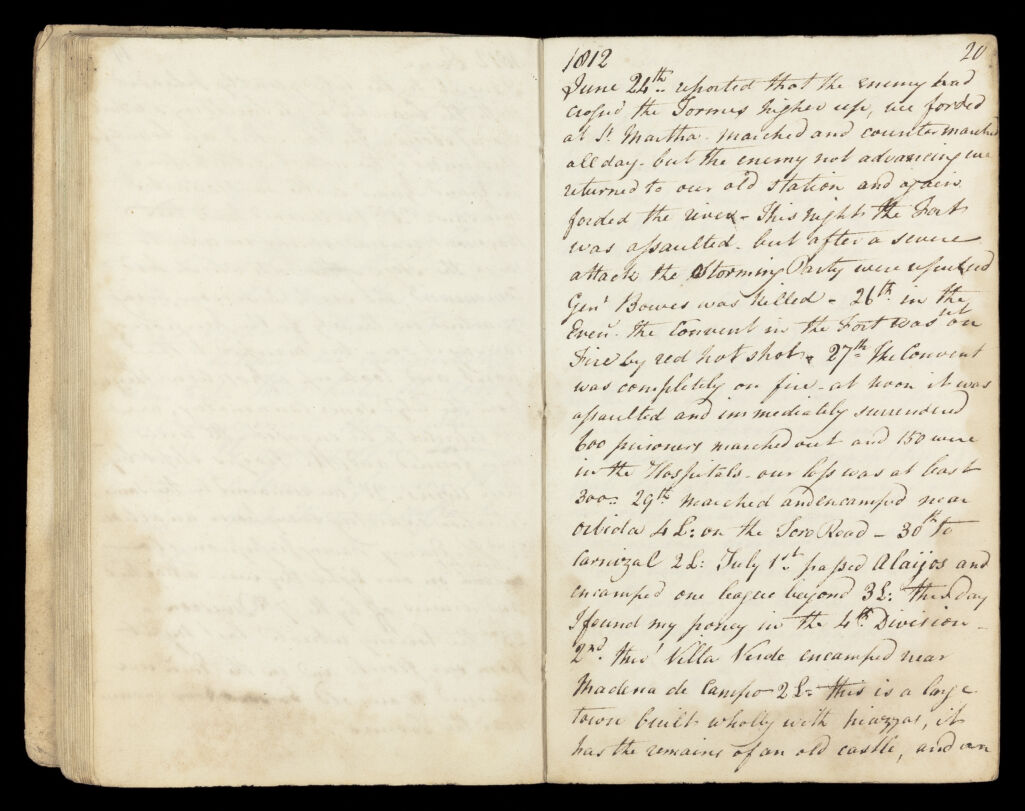 1812 20
June 24th reported that the enemy had
cross'd the Tormes higher up, we forded
at St Martha. marched and countermarched
all day. but the enemy not advancing we
returned to our old station and again
forded the river - This night the Fort
was assaulted. but after a severe
attack the Storming Party were repulsed
Genl Bowes was killed - 26th in the
Eveng. the Convent in the Fort was set on
Fire by red hot shot - 27th The Convent
was completely on fire - at noon it was
assaulted and immediately surrendered
600 prisoners marched out and 150 were
in the Hospitals. our loss was at least
300 - 29th Marched and encamped near
Orbida 4 L: on the Toro Road - 30th to
Carnizal 2 L: July 1st passed Alaijos and
encamped one league beyond 3 L: this day
I found my poney in the 4th Division -
2nd. thro' Villa Verde encamped near
Madena de Campo 2 L - this is a large
town built wholly with piazzas, it
has the remains of an old castle, and an